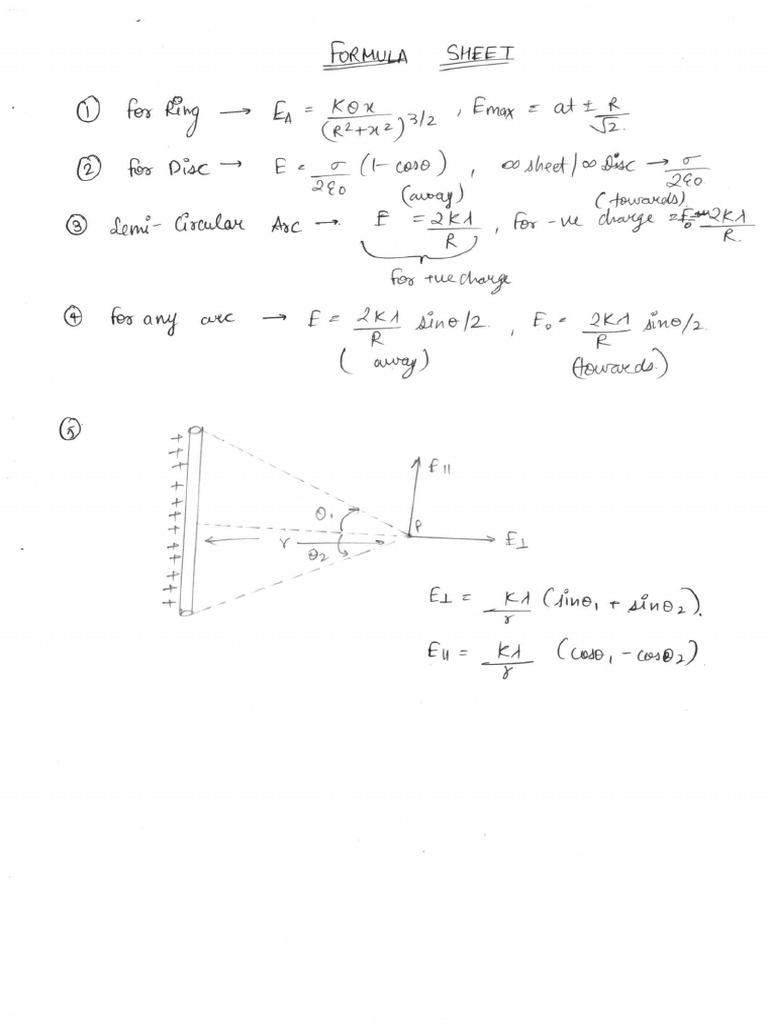 FORMULA SHEET
① For Ring → E_A = KQx / (R²+x²)^3/2 , Emax = at ± R/√2.
② for Disc → E = σ/2ε0 (1-cosθ) , ∞ sheet/∞ Disc → σ/2ε0
(away) (towards)
③ Semi-Circular Arc → E = 2Kλ/R , For -ve charge = 2Kλ/R.
for +ve charge
④ for any arc → E = 2Kλ/R sinθ/2. , E₀ = 2Kλ/R sinθ/2.
(away) (towards)
⑤
+ + + + + + + + + + + +
E||
θ₁
P
r
E⊥
θ₂
E⊥ = Kλ/r (sinθ₁ + sinθ₂).
E|| = Kλ/r (cosθ₁ - cosθ₂)